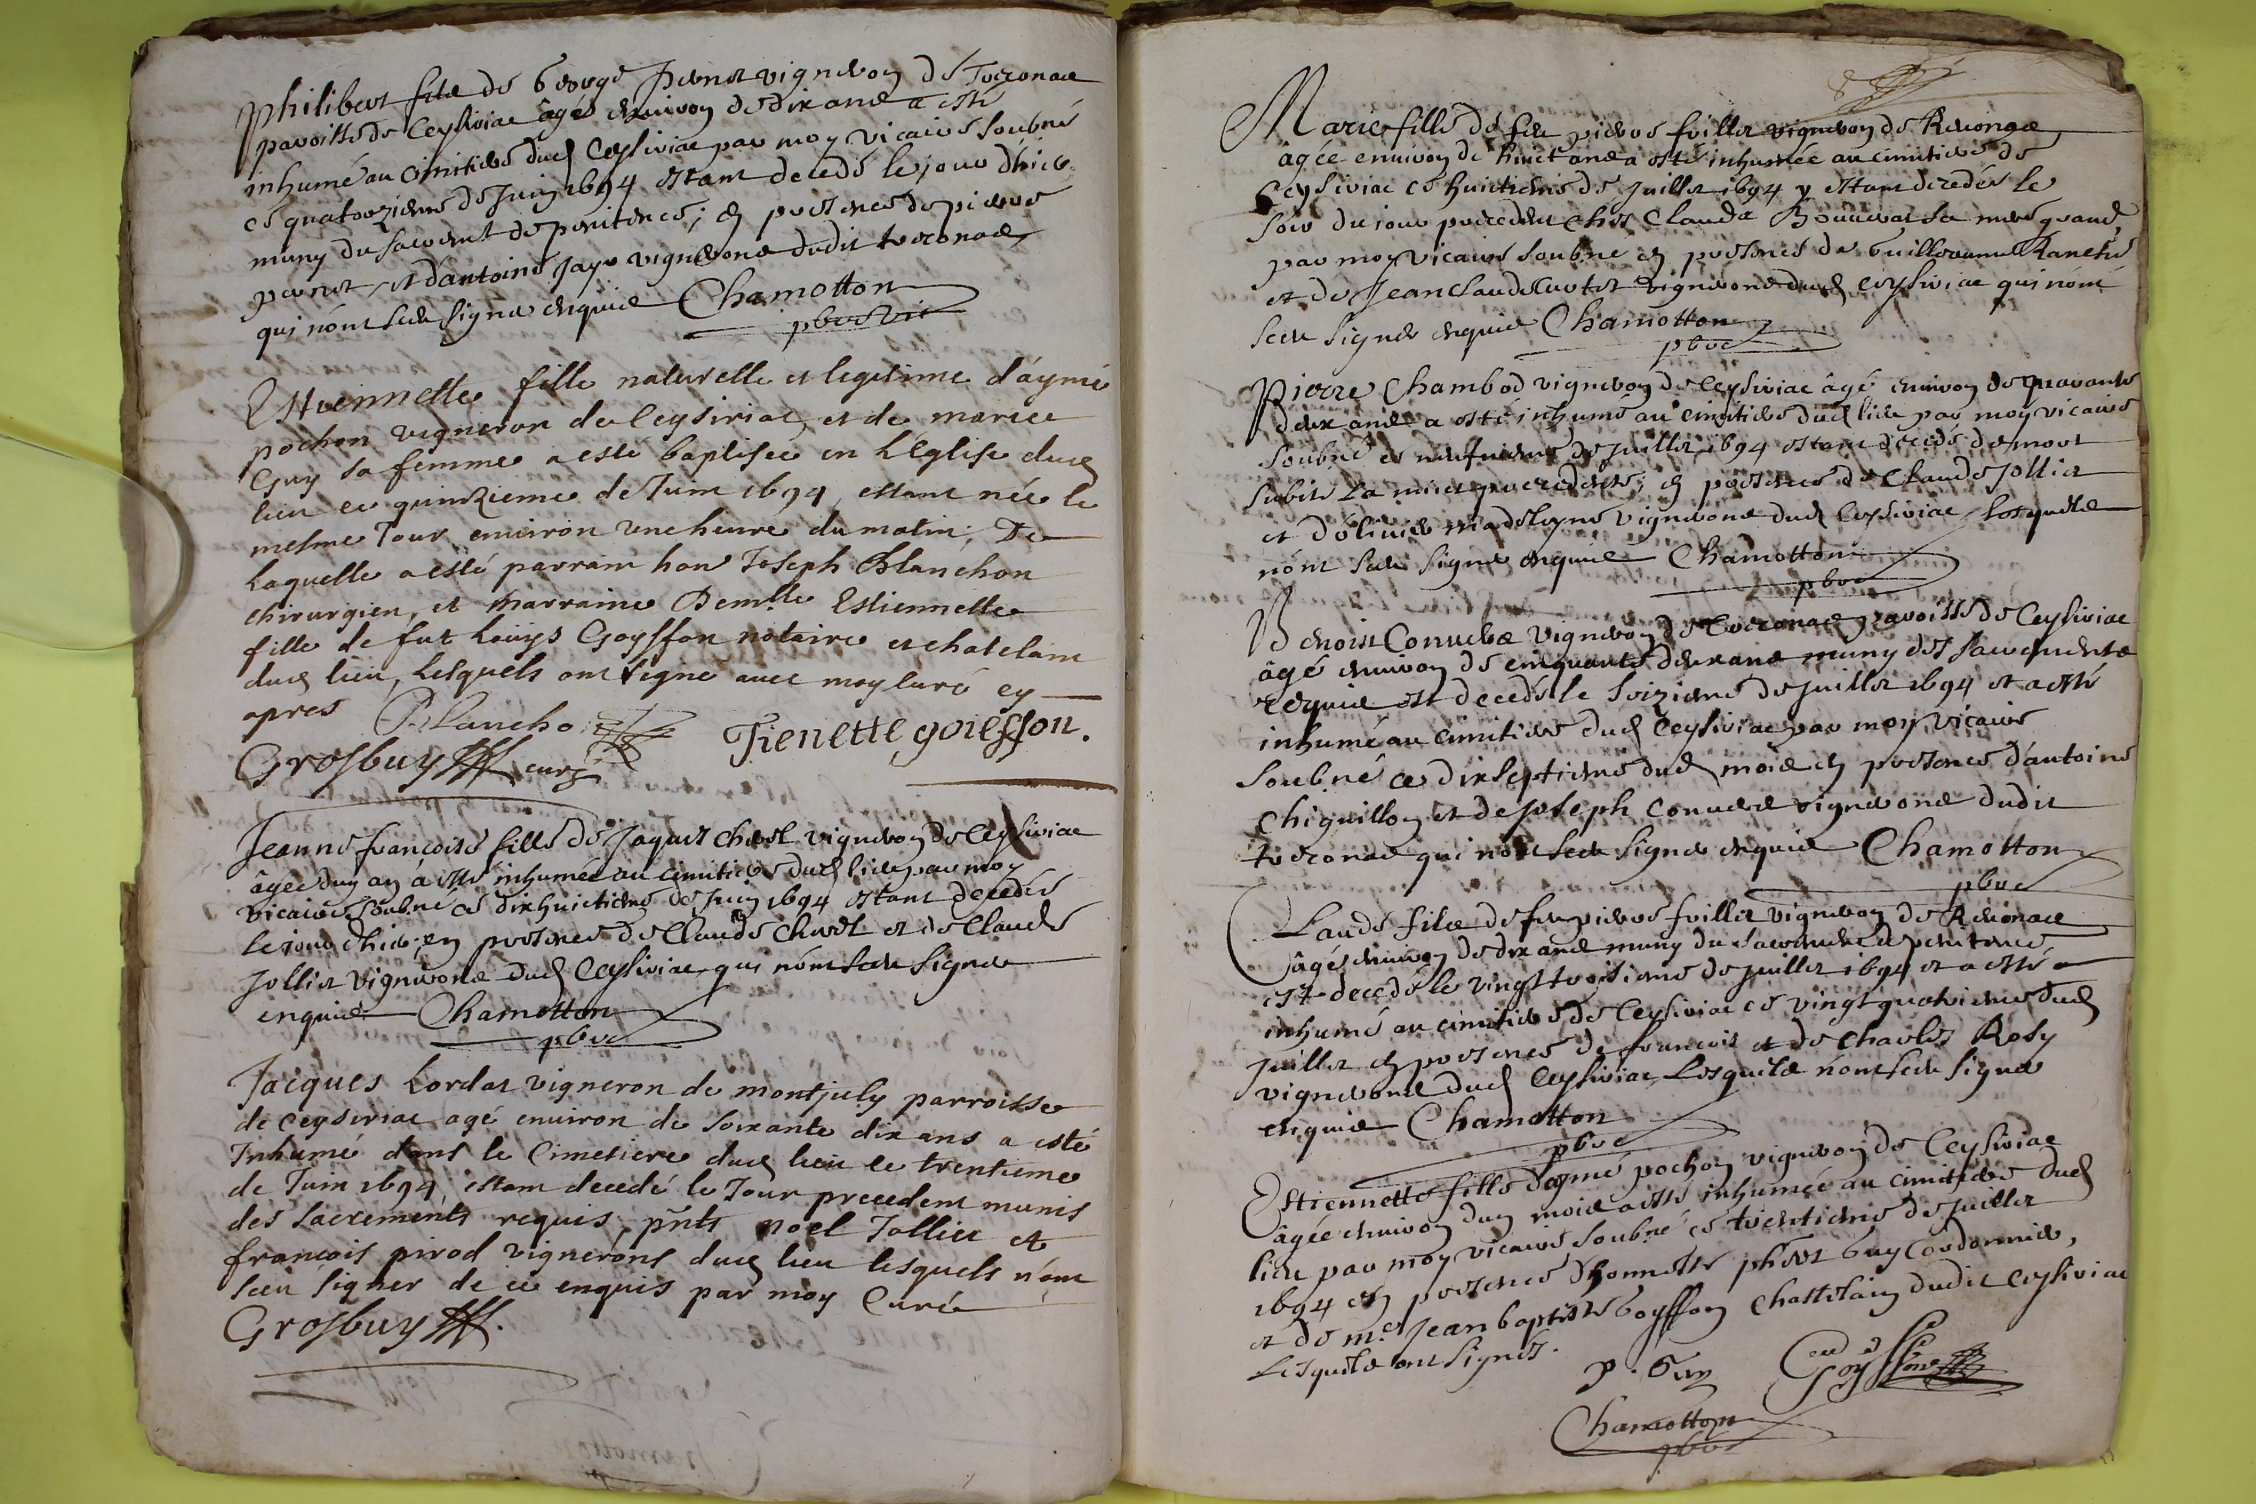 Philibert filz de George Pernet vigneron de Toçonas
parroisse de Ceysiriat âgés environ de dix ans a esté
inhumé au cimitiere dud Ceysiriat par moy vicaire soubné
ce quatorzieme de Juin 1694 estant decedé le jour d'hier
muny du sacremt de penitence; en presence de pierre
pernet, et d'antoine Jayr vignerons dudit toçonas
qui n'ont sceu signer enquis Chamotton
pbre vic
Estiennette fille naturelle et legitime d'aymé
pochon vigneron de Ceysiriat, et de marie
Guy sa femme a esté baptisée en L'Eglise dud
lieu ce quinzieme de Juin 1694, estant née le
mesme Jour environ une heure du matin; De
Laquelle a esté parrain hon Joseph Blanchon
chirurgien, et marraine Demlle Estiennette
fille de fut Louys Goyffon notaire et chatelain
dud lieu, Lesquels ont signé avec moy Curé cy
apres Blancho
Grosbuy curé Tienette goieffon.
Jeanne francoise fille de Jaques chvel vigneron de Ceysiriat
âgée d'un an a esté inhumée au cimitiere dud lieu par moy
vicaire soubné ce dixhuictieme de Juin 1694 estant decedée
le jour d'hier; en presence de Claude chvel et de Claude
Jollier vignerons dud Ceysiriat qui n'ont sceu signer
enquis Chamotton
pbre
Jacques Lordat vigneron de montjuly parroisse
de Ceysiriat agé environ de soixante dix ans a esté
Inhumé dans le Cimetiere dud lieu le trentieme
de Juin 1694, estant decedé le Jour precedent munis
des sacrements requis, pñts noel Jollier et
francois pirod vignerons dud lieu lesquels n'ont
sceu signer de ce enquis par moy Curé
Grosbuy
Marie fille de feu pierre fvillet vigneron de Revonas
âgée environ de huict ans a esté inhumée au cimitiere de
Ceysiriat ce huictieme de Juillet 1694 y estant decedée le
soir du jour precedent chez Clauda Bouveret sa mere grand,
par moy vicaire soubné en presence de Guillerme Ranché
et de Jean Claude Curtet vignerons dud Ceysiriat qui n'ont
sceu signer enquis Chamotton
pbre
Pierre Chambod vigneron de Ceysiriat âgé environ de quarante
deux ans a esté inhumé au cimitiere dud lieu par moy vicaire
soubné ce neufvieme de Juillet 1694 estant decedé de mort
subite La nuict precedente; en presence de Claude Jollier
et d'olivier mardeleyne vignerons dud Ceysiriat, lesquels
n'ont sceu signer enquis Chamotton
pbre
Benoist Convers vigneron de Toçonas parroisse de Ceysiriat
âgé environ de cinquante deux ans muny des sacrements
requis est decedé le seizieme de Juillet 1694 et a esté
inhumé au cimitiere dud Ceysiriat par moy vicaire
soubné ce dixseptieme dud mois en presence d'antoine
Chiquillon et de Joseph Convers vignerons dudit
toçonas qui n'ont sceu signer enquis Chamotton
pbre
Claude filz de feu pierre fvillet vigneron de Revonas
âgés environ de dix ans muny du sacrement de penitence
est decedé le vingt troisieme de Juillet 1694 et a esté
inhumé au cimitiere de Ceysiriat ce vingt quatrieme dud
Juillet en presence de francois et de Charles Rosy
vignerons dud Ceysiriat, Lesquels n'ont sceu signer
enquis Chamotton
pbre
Estiennette fille d'aymé pochon vigneron de Ceysiriat
âgée environ d'un mois a esté inhumée au cimitiere dud
lieu par moy vicaire soubné ce trentieme de Juillet
1694 en presence d'honneste phert Guy Cordonnier,
et de me Jean baptiste Goyffon Chastelain dudit Ceysiriat
Lesquels ont signés.
p. Guy Goyffon
Chamotton
pbre